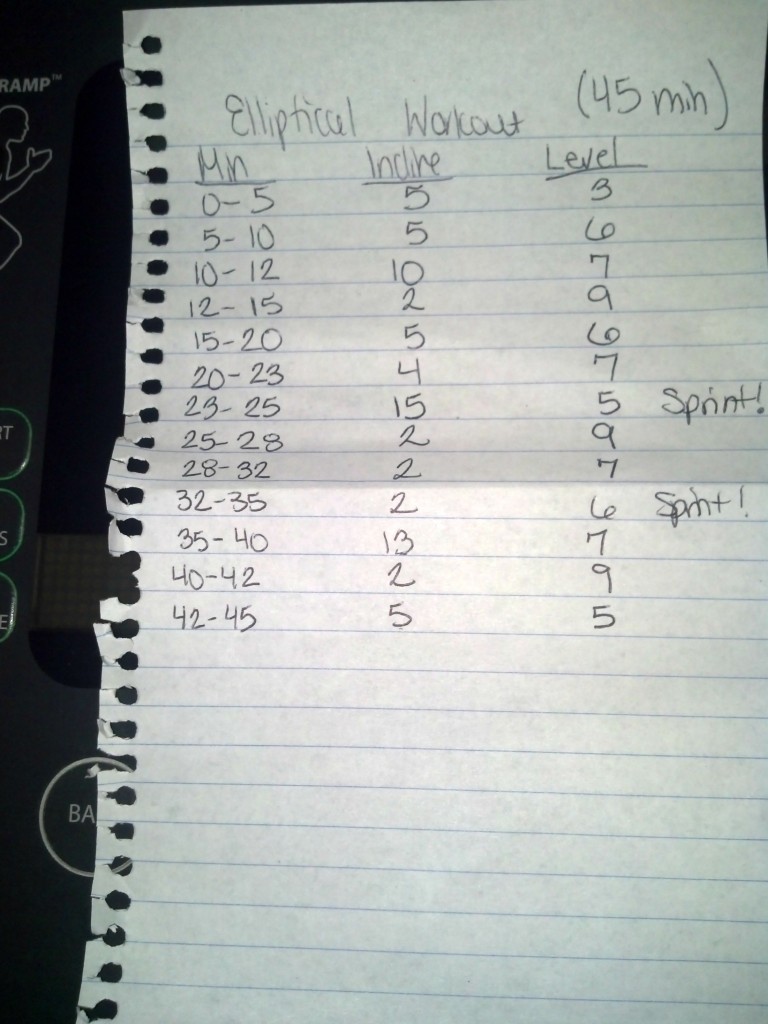 RAMP™
Elliptical Workout (45 min)
Min Incline Level
0-5 5 3
5-10 5 6
10-12 10 7
12-15 2 9
15-20 5 6
20-23 4 7
23-25 15 5 Sprint!
25-28 2 9
28-32 2 7
32-35 2 6 Sprint!
35-40 13 7
40-42 2 9
42-45 5 5
RT
S
E
BA